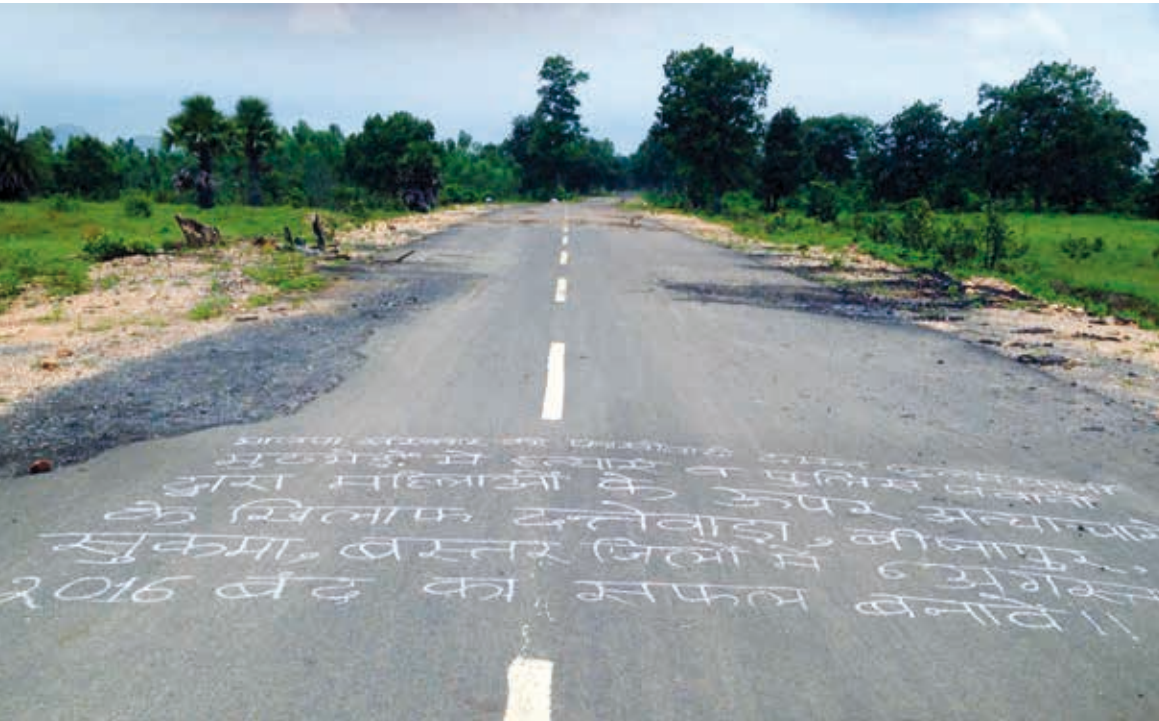 भाजपा सरकार की
मुठभेड़ों में हत्याओं व पुलिस जवानों
द्वारा महिलाओं के ऊपर अत्याचारों
के खिलाफ दन्तेवाड़ा, बीजापुर,
सुकमा, बस्तर जिलों में अगस्त
2016 बंद को सफल बनावें!!